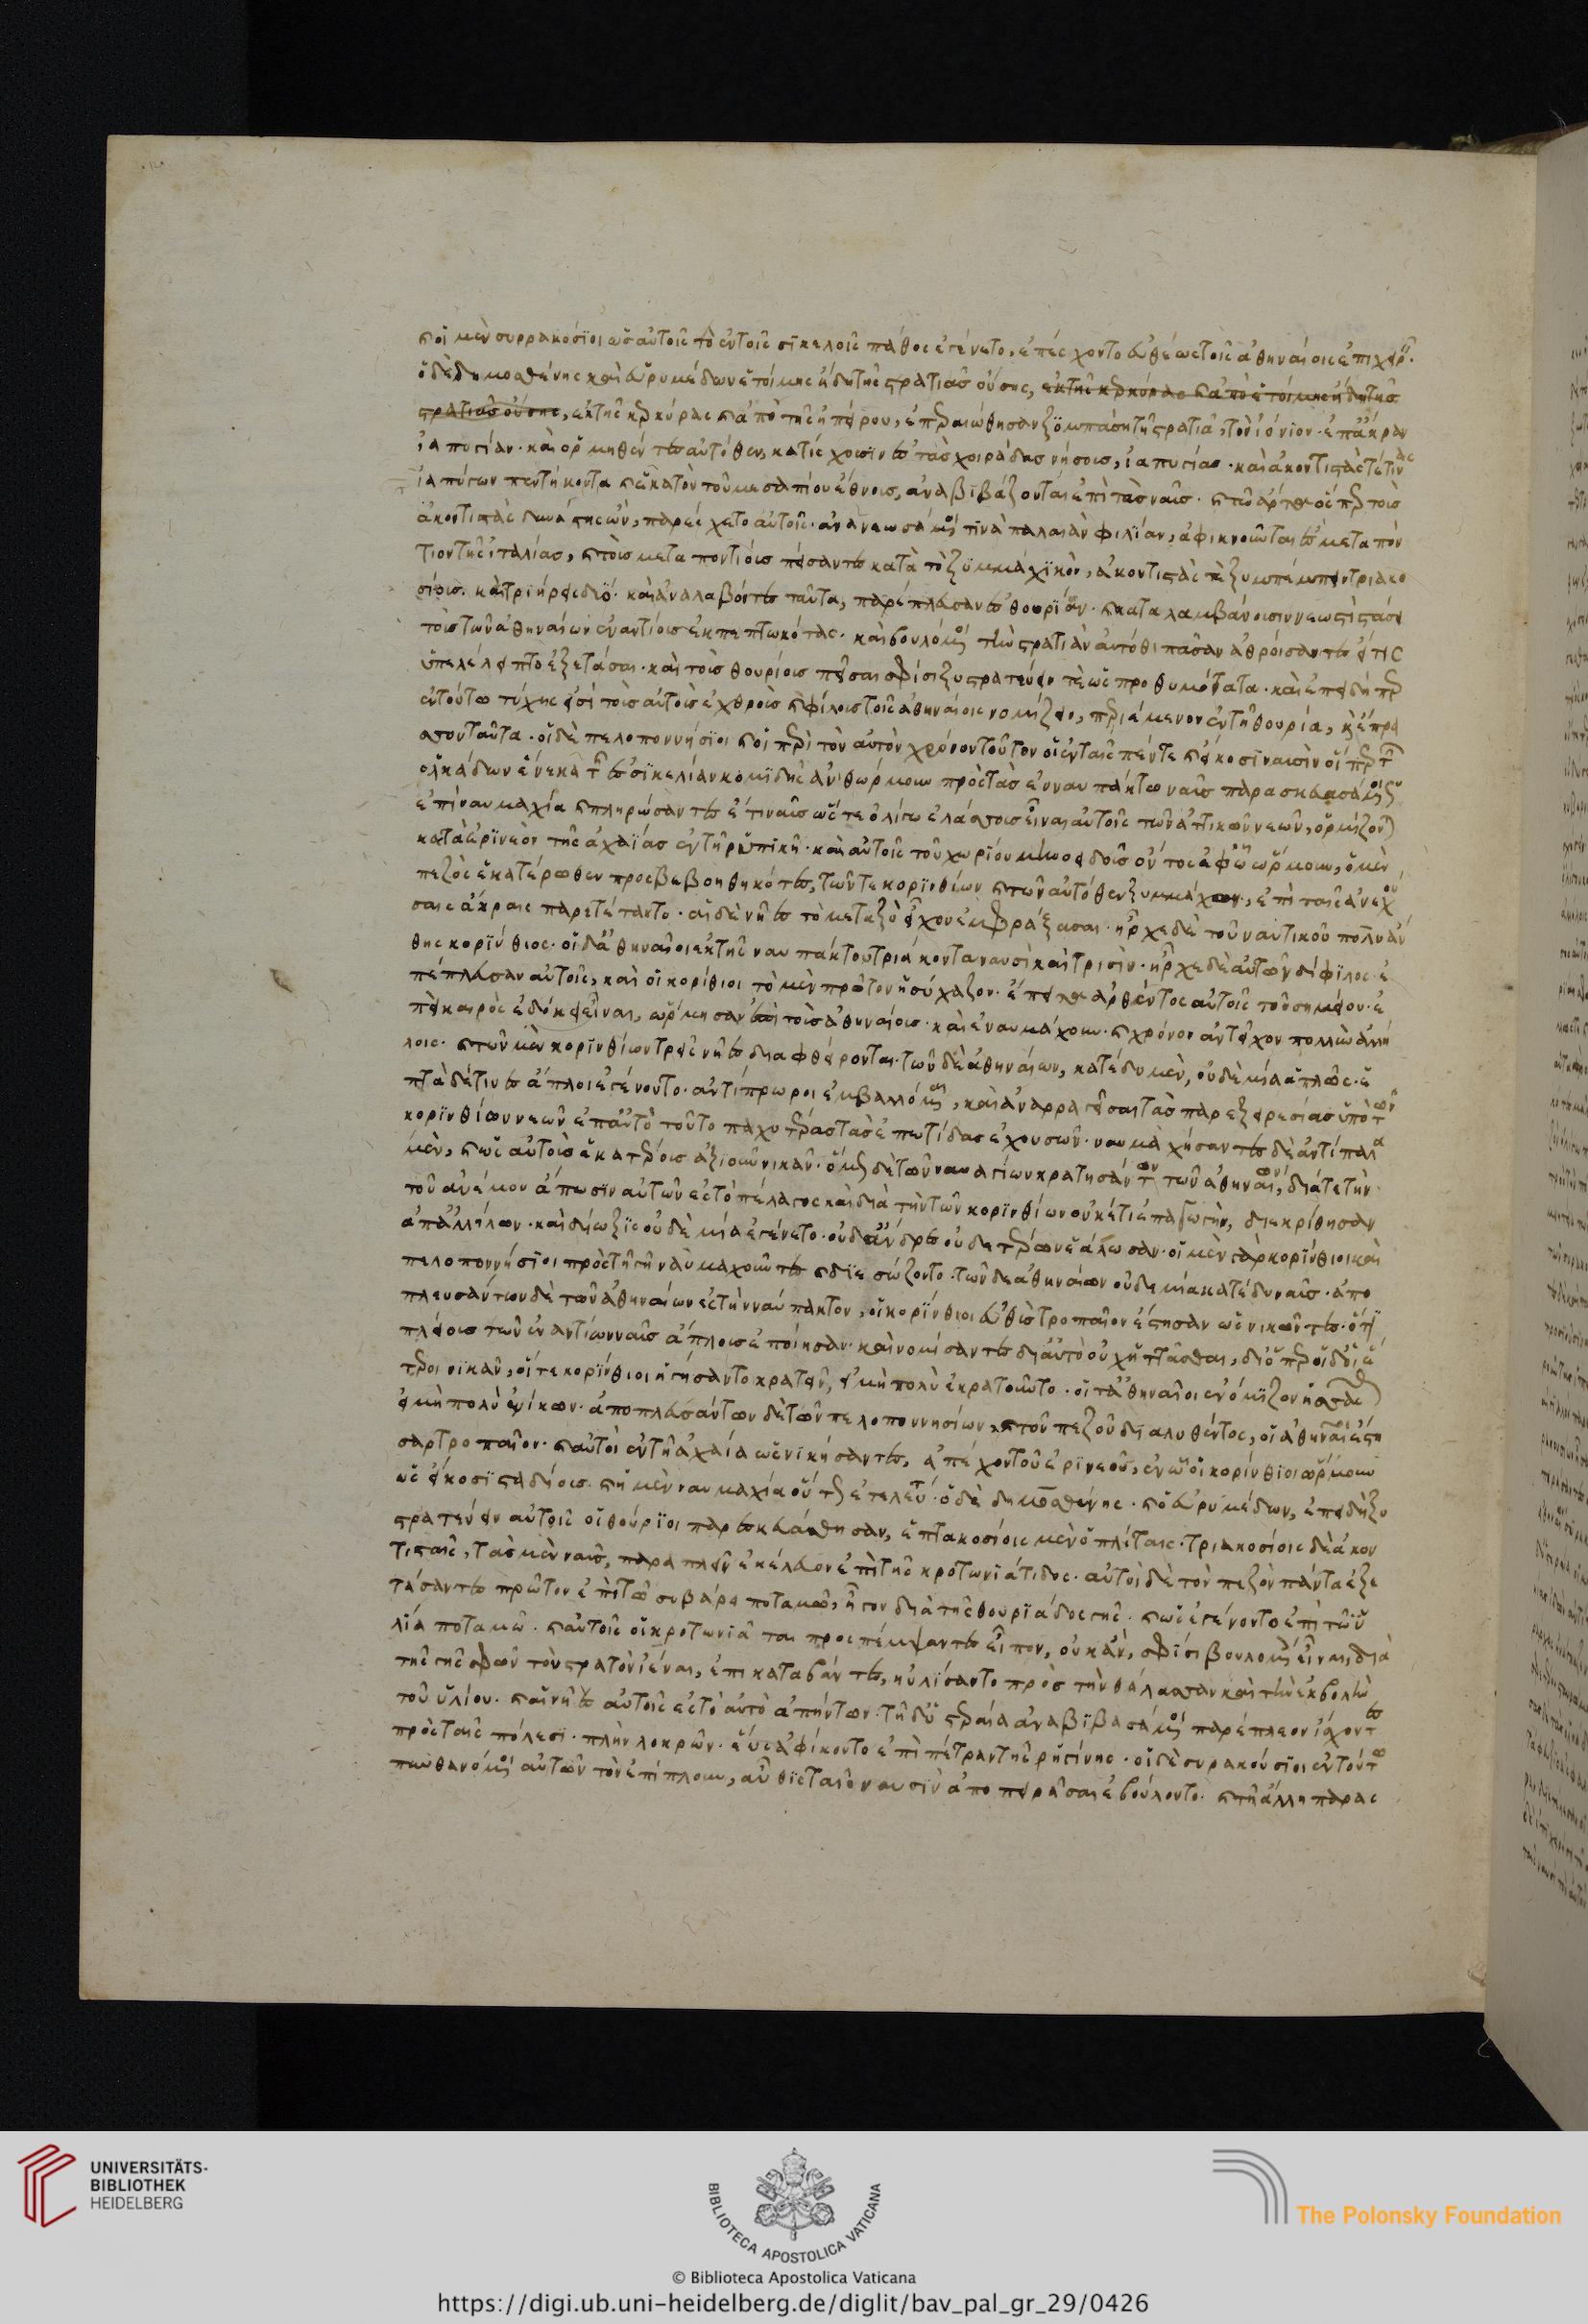 καὶ οἱ μὲν συρρακόσιοι ὡς αὐτοῖς τὸ ἐν τοῖς σικελοῖς πάθος ἐγένετο, ἐπέσχοντο εὐθέως τοῖς ἀθηναίοις ἐπιχειρεῖν.
ὁ δὲ δημοσθένης καὶ εὐρυμέδων ἑτοίμης ἤδη τῆς στρατιᾶς οὔσης, ἐκ τῆς κερκύρας καὶ ἀπὸ ἑτοίμης ἤδη τῆς
στρατιᾶς οὔσης, ἐκ τῆς κερκύρας καὶ ἀπὸ τῆς ἠπείρου, ἐπεραιώθησαν ξυμπάσῃ τῇ στρατιᾷ, τὸν ἰόνιον ἐπ' ἄκραν
ἰαπυγίαν· καὶ ὁρμηθέντες αὐτόθεν, κατίσχουσιν ἐς τὰς χοιράδας νήσους, ἰαπυγίας· καὶ ἀκοντιστάς τέ τινας
ἰαπύγων πεντήκοντα καὶ ἑκατὸν τοῦ μεσαπίου ἔθνους, ἀναβιβάζονται ἐπὶ τὰς ναῦς· καὶ τῷ ἄρτᾳ ὅσπερ τοὺς
ἀκοντιστὰς δυνάστης ὢν, παρέσχετο αὐτοῖς· ἀνανεωσάμενοί τινα παλαιὰν φιλίαν, ἀφικνοῦνται ἐς μεταπόν
τιον τῆς ἰταλίας, καὶ τοὺς μεταποντίους πείσαντες κατὰ τὸ ξυμμαχικὸν, ἀκοντιστάς τε ξυμπέμπειν τριακο
σίους. καὶ τριήρεις δύο· καὶ ἀναλαβόντες ταῦτα, παρέπλευσαν ἐς θουρίαν· καὶ καταλαμβάνουσι νεωστὶ στάσει
τοὺς τῶν ἀθηναίων ἐναντίους ἐκπεπτωκότας. καὶ βουλόμενοι τὴν στρατιὰν αὐτόθι πᾶσαν ἀθροίσαντες εἴ τις
ὑπελέλειπτο ἐξετάσαι· καὶ τοὺς θουρίους πεῖσαι σφίσι ξυστρατεύειν τε ὡς προθυμότατα· καὶ ἐπειδήπερ
ἐν τούτῳ τύχης εἰσὶ τοὺς αὐτοὺς ἐχθροὺς καὶ φίλους τοῖς ἀθηναίοις νομίζειν, περιέμενον ἐν τῇ θουρίᾳ, καὶ ἔπρα
σσον ταῦτα. οἱ δὲ πελοποννήσιοι καὶ οἱ περὶ τὸν αὐτὸν χρόνον τοῦτον οἱ ἐν ταῖς πέντε καὶ εἴκοσι ναυσὶν οἵπερ τῶν
ὁλκάδων ἕνεκα τῆς ἐς σικελίαν κομιδῆς ἀνθώρμουν πρὸς τὰς ἐν ναυπάκτῳ ναῦς παρασκευασάμενοι ὡς
ἐπὶ ναυμαχίᾳ καὶ πληρώσαντες ἔτι ναῦς ὥστε ὀλίγῳ ἐλάσσους εἶναι αὐτοῖς τῶν ἀττικῶν νεῶν, ὁρμίζονται
κατὰ ἐρινεὸν τῆς ἀχαΐας ἐν τῇ ῥυπικῇ· καὶ αὐτοῖς τοῦ χωρίου μηνοειδοῦς ὄντος ἐφ' ᾧ ὥρμουν, ὁ μὲν
πεζὸς ἑκατέρωθεν προσβεβοηθηκότες, τῶν τε κορινθίων καὶ τῶν αὐτόθεν ξυμμάχων, ἐπὶ ταῖς ἀνεχού
σαις ἄκραις παρετέτακτο. αἱ δὲ νῆες τὸ μεταξὺ εἶχον ἐμφράξασαι· ἦρχε δὲ τοῦ ναυτικοῦ πολυάν
θης κορίνθιος. οἱ δ' ἀθηναῖοι ἐκ τῆς ναυπάκτου τριάκοντα ναυσὶ καὶ τρισὶν· ἦρχε δὲ αὐτῶν δίφιλος· ἐ
πέπλευσαν αὐτοῖς, καὶ οἱ κορίνθιοι τὸ μὲν πρῶτον ἡσύχαζον· ἔπειτα ἀρθέντος αὐτοῖς τοῦ σημείου· ἐ
πεὶ καιρὸς ἐδόκει εἶναι, ὥρμησαν ἐπὶ τοὺς ἀθηναίους· καὶ ἐναυμάχουν· καὶ χρόνον ἀντεῖχον πολὺν ἀλλή
λοις. καὶ τῶν μὲν κορινθίων τρεῖς νῆες διαφθείρονται. τῶν δὲ ἀθηναίων, κατέδυ μὲν, οὐδεμία ἁπλῶς· ἑ
πτὰ δέ τινες ἄπλοι ἐγένοντο· ἀντίπρωροι ἐμβαλλόμεναι, καὶ ἀναρραγεῖσαι τὰς παρεξειρεσίας ὑπὸ τῶν
κορινθίων νεῶν ἐπ' αὐτὸ τοῦτο παχυτέρας τὰς ἐπωτίδας ἐχουσῶν· ναυμαχήσαντες δὲ ἀντίπαλα
μὲν, καὶ ὡς αὐτοὺς ἑκατέρους ἀξιοῦν νικᾶν· ὅμως δὲ τῶν ναυαγίων κρατησάντων τῶν ἀθηναίων, διά τε τὴν
τοῦ ἀνέμου ἄπωσιν αὐτῶν ἐς τὸ πέλαγος καὶ διὰ τὴν τῶν κορινθίων οὐκέτι ἐπαγωγὴν, διεκρίθησαν
ἀπ' ἀλλήλων· καὶ δίωξις οὐδεμία ἐγένετο· οὐδ' ἄνδρες οὐδετέρων ἑάλωσαν· οἱ μὲν γὰρ κορίνθιοι καὶ
πελοποννήσιοι πρὸς τῇ γῇ ναυμαχοῦντες καὶ διεσώζοντο· τῶν δὲ ἀθηναίων οὐδεμία κατέδυ ναῦς. ἀπο
πλευσάντων δὲ τῶν ἀθηναίων ἐς τὴν ναύπακτον, οἱ κορίνθιοι εὐθὺς τροπαῖον ἔστησαν ὡς νικῶντες· ὅτι
πλείους τῶν ἐναντίων ναῦς ἄπλους ἐποίησαν· καὶ νομίσαντες δι' αὐτὸ οὐχ ἡττᾶσθαι, δι' ὅπερ οὐδ' οἱ ἕ
τεροι νικᾶν, οἵ τε κορίνθιοι ἡγήσαντο κρατεῖν, εἰ μὴ πολὺ ἐκρατοῦντο. οἵ τ' ἀθηναῖοι ἐνόμιζον ἡσσᾶσθαι
εἰ μὴ πολὺ ἐνίκων. ἀποπλευσάντων δὲ τῶν πελοποννησίων, καὶ τοῦ πεζοῦ διαλυθέντος, οἱ ἀθηναῖοι ἔστη
σαν τροπαῖον· καὶ αὐτοὶ ἐν τῇ ἀχαΐα ὡς νικήσαντες, ἀπέχον τοῦ ἐρινεοῦ, ἐν ᾧ οἱ κορίνθιοι ὥρμουν
ὡς εἴκοσι σταδίους. καὶ ἡ μὲν ναυμαχία οὕτως ἐτελεύτα. ὁ δὲ δημοσθένης. καὶ ὁ εὐρυμέδων, ἐπειδὴ ξυ
στρατεύειν αὐτοῖς οἱ θούριοι παρεσκευάσθησαν, ἑπτακοσίοις μὲν ὁπλίταις· τριακοσίοις δὲ ἀκον
τισταῖς, τὰς μὲν ναῦς, παραπλεῖν ἐκέλευον ἐπὶ τῆς κροτωνιάτιδος. αὐτοὶ δὲ τὸν πεζὸν πάντα ἐξε
τάσαντες πρῶτον ἐπὶ τῷ συβάρει ποταμῷ, ἦγον διὰ τῆς θουριάδος γῆς. καὶ ὡς ἐγένοντο ἐπὶ τῷ ὑ
λίᾳ ποταμῷ. καὶ αὐτοῖς οἱ κροτωνιᾶται προσπέμψαντες εἶπον, οὐκ ἂν, σφίσι βουλομένοις εἶναι, διὰ
τῆς γῆς σφῶν τὸν στρατὸν ἰέναι, ἐπικαταβάντες, ηὐλίσαντο πρὸς τὴν θάλασσαν καὶ τὴν ἐκβολὴν
τοῦ ὑλίου. καὶ αἱ νῆες αὐτοῖς ἐς τὸ αὐτὸ ἀπήντων. τῇ δ' ὑστεραίᾳ ἀναβιβασάμενοι παρέπλεον ἴσχοντες
πρὸς ταῖς πόλεσι· πλὴν λοκρῶν· ἕως ἀφίκοντο ἐπὶ πέτραν τῆς ῥηγίνης. οἱ δὲ συρακούσιοι ἐν τούτῳ
πυνθανόμενοι αὐτῶν τὸν ἐπίπλουν, αὖθις ταῖς ναυσὶν ἀποπειρᾶσαι ἐβούλοντο. καὶ τῇ ἄλλῃ παρασ
UNIVERSITÄTS-
BIBLIOTHEK
HEIDELBERG
BIBLIOTECA APOSTOLICA VATICANA
The Polonsky Foundation
© Biblioteca Apostolica Vaticana
https://digi.ub.uni-heidelberg.de/diglit/bav_pal_gr_29/0426